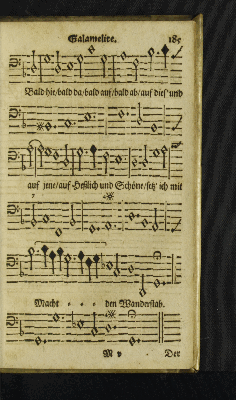 Salamelite. 185
Bald hie/bald da/bald auf/bald ab/auf dies' und
auf jene/auf Heßlich und Schöne/setz' ich mit
7
Macht . . . den Wanderstab.
M v Der